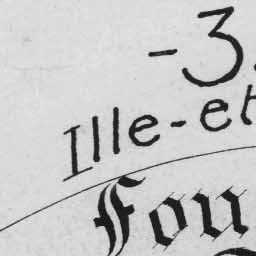 -3.
Ille-et
Fou